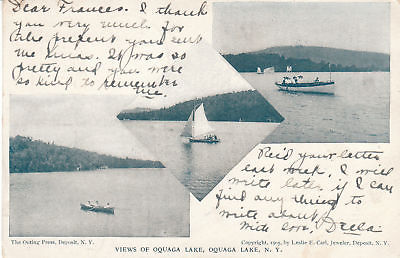 Dear Frances. I thank
you very much for
the present you sent
me Xmas. It was so
pretty and you were
so kind to remember
me.
Rec'd your letter
last week. I will
write later if I can
find any thing to
write about
With love, Della
The Outing Press, Deposit, N. Y.
Copyright, 1905, by Leslie E. Carl, Jeweler, Deposit, N. Y.
VIEWS OF OQUAGA LAKE, OQUAGA LAKE, N. Y.